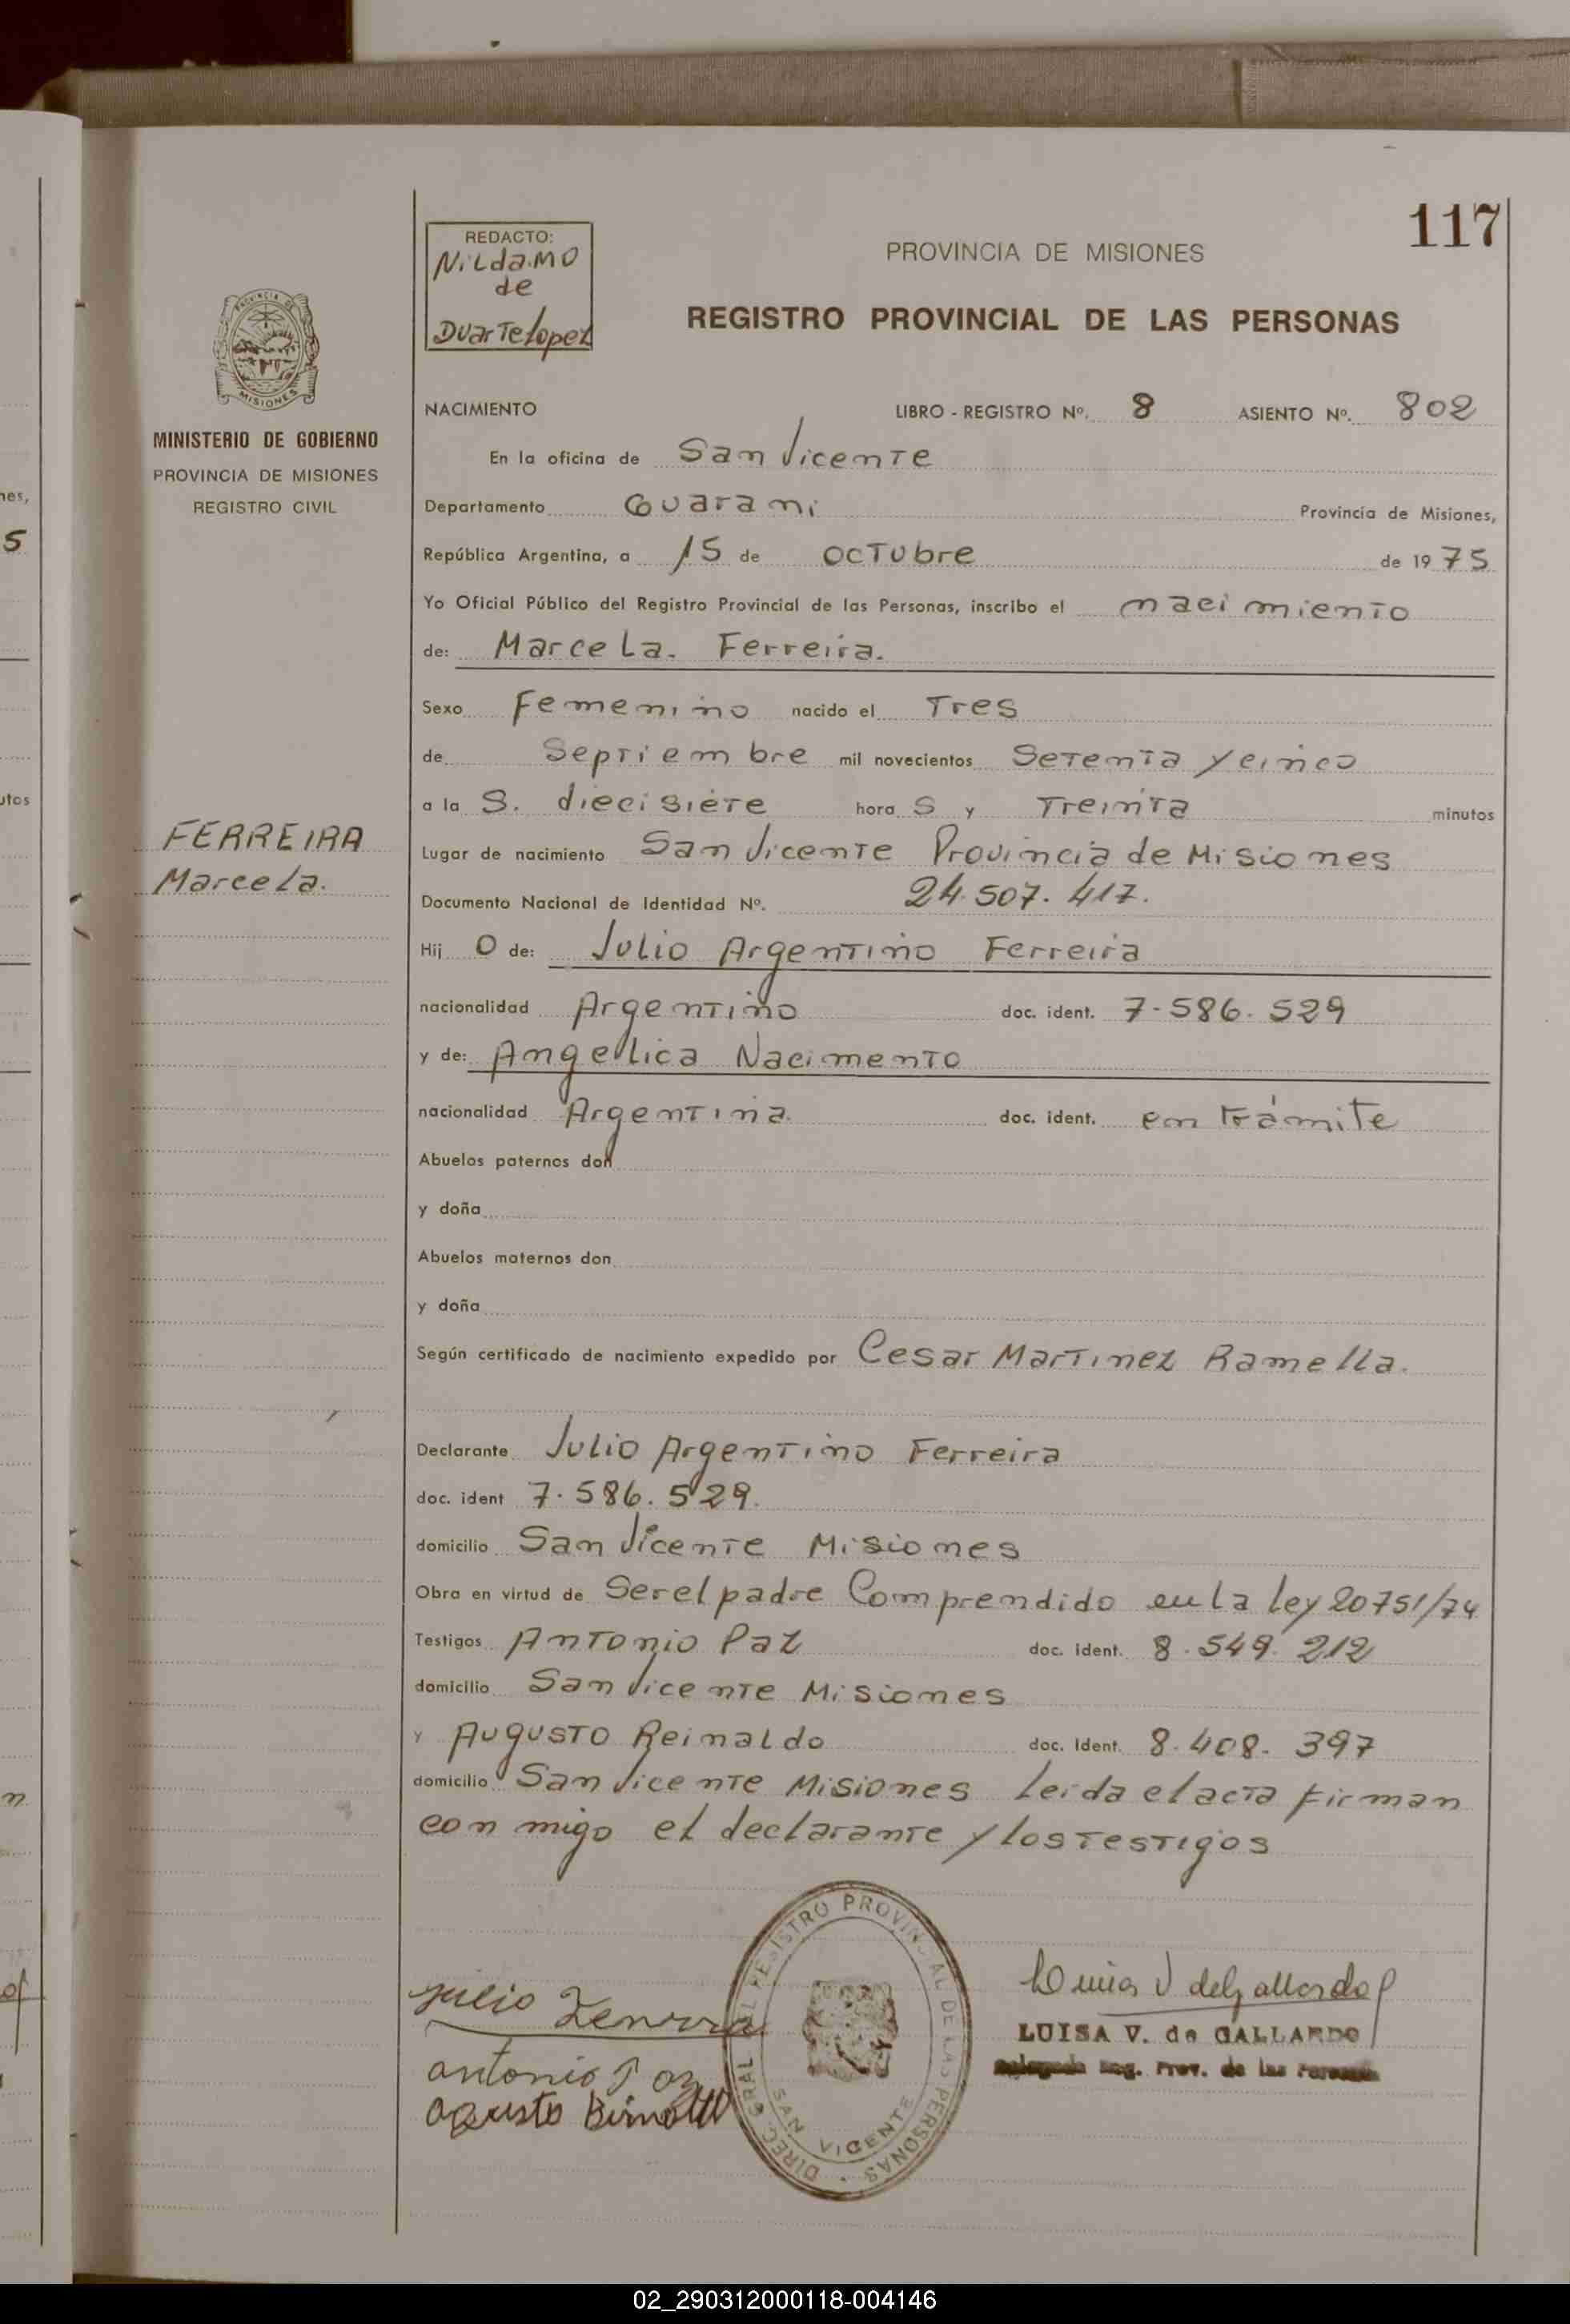 117
REDACTO:
Nilda.Mo
de
Duarte Lopez
PROVINCIA DE MISIONES
REGISTRO PROVINCIAL DE LAS PERSONAS
PROVINCIA DE
MISIONES
MINISTERIO DE GOBIERNO
PROVINCIA DE MISIONES
REGISTRO CIVIL
NACIMIENTO LIBRO - REGISTRO Nº. 8 ASIENTO Nº. 802
En la oficina de San Vicente
Departamento Guarani Provincia de Misiones,
República Argentina, a 15 de octubre de 1975
Yo Oficial Público del Registro Provincial de las Personas, inscribo el nacimiento
de: Marcela. Ferreira.
Sexo Femenino nacido el Tres
de Septiembre mil novecientos Setenta y cinco
a la S. diecisiete hora S y Treinta minutos
FERREIRA
Marcela.
Lugar de nacimiento San Vicente Provincia de Misiones
Documento Nacional de Identidad Nº. 24.507.417.
Hij o de: Julio Argentino Ferreira
nacionalidad Argentino doc. ident. 7.586.529
y de: Angelica Nacimento
nacionalidad Argentina. doc. ident. en trámite
Abuelos paternos don
y doña
Abuelos maternos don
y doña
Según certificado de nacimiento expedido por Cesar Martinez Ramella.
Declarante Julio Argentino Ferreira
doc. ident 7.586.529.
domicilio San Vicente Misiones
Obra en virtud de Ser el padre Comprendido en la ley 20751/74
Testigos Antonio Paz doc. ident. 8.549.212
domicilio San Vicente Misiones
y Augusto Reinaldo doc. Ident. 8.408.397
domicilio San Vicente Misiones leida el acta firman
con migo el declarante y los testigos
DIREC. GRAL DEL REGISTRO PROVINCIAL DE LAS PERSONAS
SAN VICENTE
Julio Ferreira
antonio Paz
Luisa V de Gallardo
LUISA V. de GALLARDO
Delegada Reg. Prov. de las Personas
nes,
5
utos
02_290312000118-004146